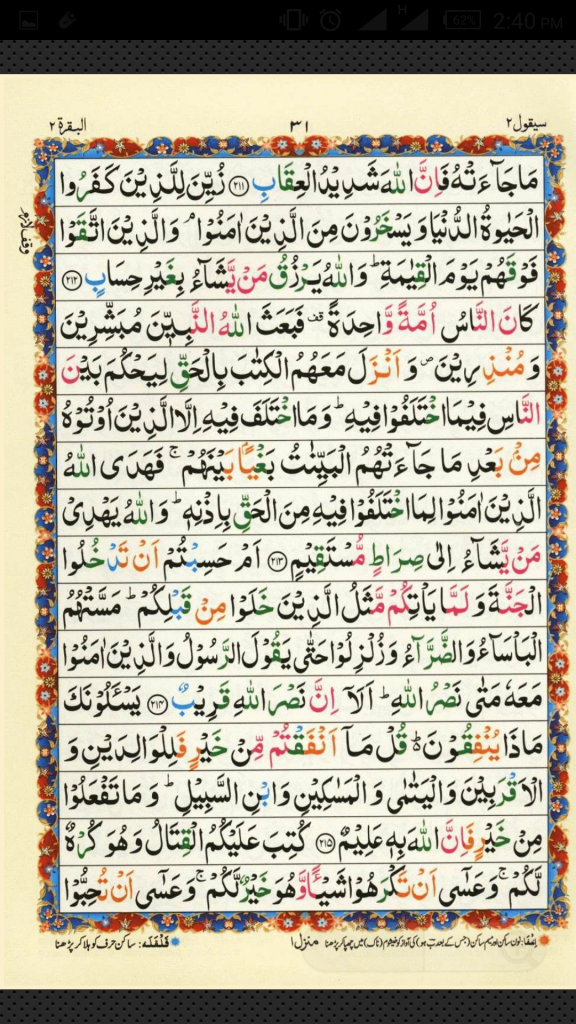 62% 2:40 PM
سيقول ٢ ٣١ البقرة ٢
مَا جَآءَتْهُ فَاِنَّ اللّٰهَ شَدِيْدُ الْعِقَابِ ﴿٢١١﴾ زُيِّنَ لِلَّذِيْنَ كَفَرُوا
الْحَيٰوةُ الدُّنْيَا وَيَسْخَرُوْنَ مِنَ الَّذِيْنَ اٰمَنُوْا ۘ وَالَّذِيْنَ اتَّقَوْا
وقف لازم
فَوْقَهُمْ يَوْمَ الْقِيٰمَةِ ؕ وَاللّٰهُ يَرْزُقُ مَنْ يَّشَآءُ بِغَيْرِ حِسَابٍ ﴿٢١٢﴾
كَانَ النَّاسُ اُمَّةً وَّاحِدَةً قف فَبَعَثَ اللّٰهُ النَّبِيّٖنَ مُبَشِّرِيْنَ
وَمُنْذِرِيْنَ ص وَاَنْزَلَ مَعَهُمُ الْكِتٰبَ بِالْحَقِّ لِيَحْكُمَ بَيْنَ
النَّاسِ فِيْمَا اخْتَلَفُوْا فِيْهِ ؕ وَمَا اخْتَلَفَ فِيْهِ اِلَّا الَّذِيْنَ اُوْتُوْهُ
مِنْۢ بَعْدِ مَا جَآءَتْهُمُ الْبَيِّنٰتُ بَغْيًاۢ بَيْنَهُمْ ۚ فَهَدَى اللّٰهُ
الَّذِيْنَ اٰمَنُوْا لِمَا اخْتَلَفُوْا فِيْهِ مِنَ الْحَقِّ بِاِذْنِهٖ ؕ وَاللّٰهُ يَهْدِيْ
مَنْ يَّشَآءُ اِلٰى صِرَاطٍ مُّسْتَقِيْمٍ ﴿٢١٣﴾ اَمْ حَسِبْتُمْ اَنْ تَدْخُلُوا
الْجَنَّةَ وَلَمَّا يَاْتِكُمْ مَّثَلُ الَّذِيْنَ خَلَوْا مِنْ قَبْلِكُمْ ؕ مَسَّتْهُمُ
الْبَاْسَآءُ وَالضَّرَّآءُ وَزُلْزِلُوْا حَتّٰى يَقُوْلَ الرَّسُوْلُ وَالَّذِيْنَ اٰمَنُوْا
مَعَهٗ مَتٰى نَصْرُ اللّٰهِ ؕ اَلَاۤ اِنَّ نَصْرَ اللّٰهِ قَرِيْبٌ ﴿٢١٤﴾ يَسْـَٔلُوْنَكَ
مَاذَا يُنْفِقُوْنَ ؕ قُلْ مَاۤ اَنْفَقْتُمْ مِّنْ خَيْرٍ فَلِلْوَالِدَيْنِ وَ
الْاَقْرَبِيْنَ وَالْيَتٰمٰى وَالْمَسٰكِيْنِ وَابْنِ السَّبِيْلِ ؕ وَمَا تَفْعَلُوْا
مِنْ خَيْرٍ فَاِنَّ اللّٰهَ بِهٖ عَلِيْمٌ ﴿٢١٥﴾ كُتِبَ عَلَيْكُمُ الْقِتَالُ وَهُوَ كُرْهٌ
لَّكُمْ ۚ وَعَسٰٓى اَنْ تَكْرَهُوْا شَيْـًٔا وَّهُوَ خَيْرٌ لَّكُمْ ۚ وَعَسٰٓى اَنْ تُحِبُّوْا
اخفا: نون ساکن اور میم ساکن (جس کے بعد ب ہو) کی آواز کو خیشوم (ناک) میں چھپا کر پڑھنا منزل ١ قلقلہ: ساکن حرف کو ہلا کر پڑھنا